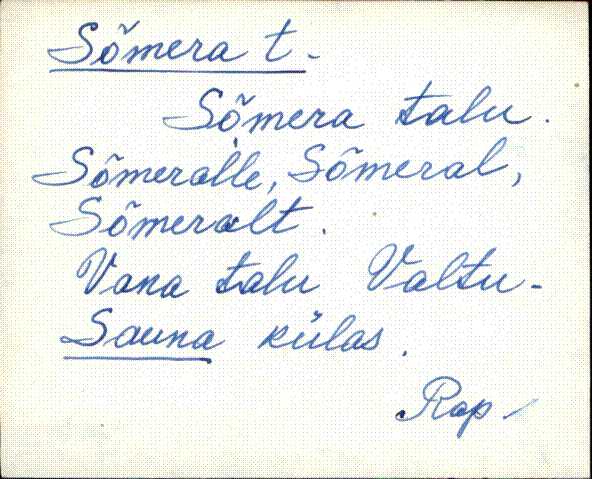 Sõmera t.
Sõmera talu.
Sõmeralle, Sõmeral,
Sõmeralt.
Vana talu Valtu-
Sauna külas.
Rap.